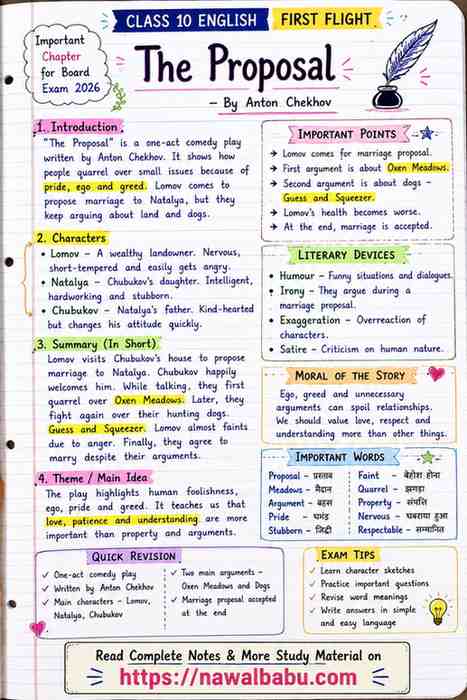 CLASS 10 ENGLISH FIRST FLIGHT
Important
Chapter
for Board
Exam 2026
The Proposal
– By Anton Chekhov
1. Introduction
"The Proposal" is a one-act comedy play
written by Anton Chekhov. It shows how
people quarrel over small issues because of
pride, ego and greed. Lomov comes to
propose marriage to Natalya, but they
keep arguing about land and dogs.
2. Characters
• Lomov – A wealthy landowner. Nervous,
short-tempered and easily gets angry.
• Natalya – Chubukov's daughter. Intelligent,
hardworking and stubborn.
• Chubukov – Natalya's father. Kind-hearted
but changes his attitude quickly.
3. Summary (In Short)
Lomov visits Chubukov's house to propose
marriage to Natalya. Chubukov happily
welcomes him. While talking, they first
quarrel over Oxen Meadows. Later, they
fight again over their hunting dogs.
Guess and Squeezer. Lomov almost faints
due to anger. Finally, they agree to
marry despite their arguments.
4. Theme / Main Idea
The play highlights human foolishness,
ego, pride and greed. It teaches us that
love, patience and understanding are more
important than property and arguments.
IMPORTANT POINTS
→ Lomov comes for marriage proposal.
→ First argument is about Oxen Meadows.
→ Second argument is about dogs –
Guess and Squeezer.
→ Lomov's health becomes worse.
→ At the end, marriage is accepted.
LITERARY DEVICES
• Humour – Funny situations and dialogues.
• Irony – They argue during a
marriage proposal.
• Exaggeration – Overreaction of
characters.
• Satire – Criticism on human nature.
MORAL OF THE STORY
Ego, greed and unnecessary
arguments can spoil relationships.
We should value love, respect and
understanding more than other things.
IMPORTANT WORDS
Proposal – प्रस्ताव
Meadows – मैदान
Argument – बहस
Pride – घमंड
Stubborn – जिद्दी
Faint – बेहोश होना
Quarrel – झगड़ा
Property – संपत्ति
Nervous – घबराया हुआ
Respectable – सम्मानित
QUICK REVISION
✓ One-act comedy play
✓ Written by Anton Chekhov
✓ Main characters – Lomov,
Natalya, Chubukov
✓ Two main arguments –
Oxen Meadows and Dogs
✓ Marriage proposal accepted
at the end
EXAM TIPS
✓ Learn character sketches
✓ Practice important questions
✓ Revise word meanings
✓ Write answers in simple
and easy language
Read Complete Notes & More Study Material on
https://nawalbabu.com